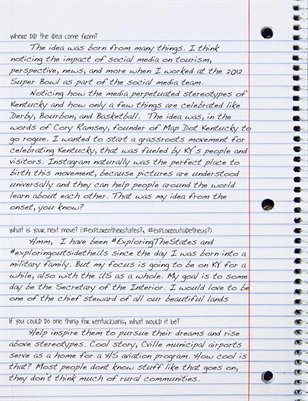 Where DID the idea come from?
The idea was born from many things. I think
noticing the impact of social media on tourism,
perspective, news, and more when I worked at the 2012
Super Bowl as part of the social media team.
Noticing how the media perpetuated stereotypes of
Kentucky and how only a few things are celebrated like
Derby, Bourbon, and Basketball. The idea was, in the
words of Cory Ramsey, founder of Map Dot Kentucky to
go rogue. I wanted to start a grassroots movement for
celebrating Kentucky, that was fueled by KY's people and
visitors. Instagram naturally was the perfect place to
birth this movement, because pictures are understood
universally and they can help people around the world
learn about each other. That was my idea from the
onset, you know?
What is your next move? (#explorethestates?, #exploreoutsidetheus?)
Hmm, I have been #ExploringTheStates and
#exploringoutsidetheUs since the day I was born into a
military family. But my focus is going to be on KY for a
while, also with the US as a whole. My goal is to some
day be the Secretary of the Interior. I would love to be
one of the chief steward of all our beautiful lands
If you could do one thing for Kentuckians, what would it be?
Help inspire them to pursue their dreams and rise
above stereotypes. Cool story, Cville municipal airports
serve as home for a HS aviation program. How cool is
that? Most people dont know stuff like that goes on,
they don't think much of rural communities.